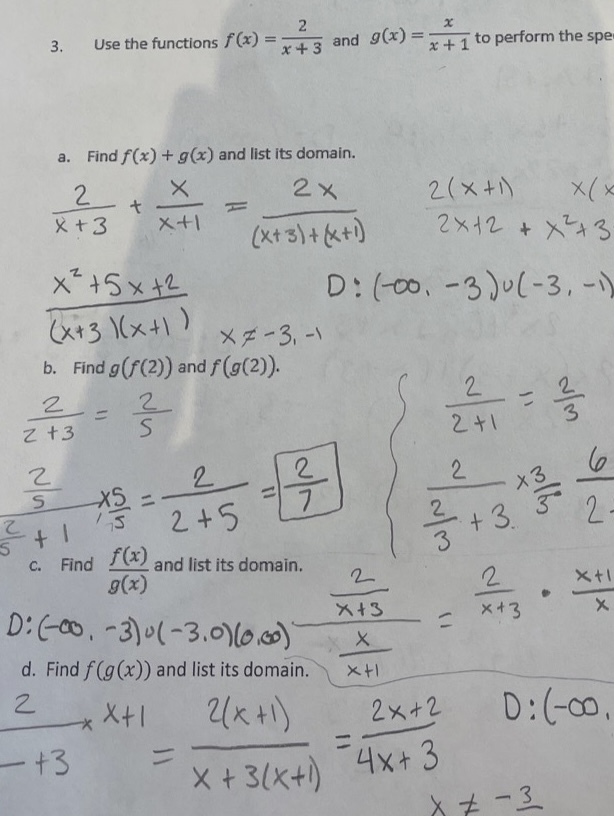 3. Use the functions f(x) = 2/(x + 3) and g(x) = x/(x + 1) to perform the spe
a. Find f(x) + g(x) and list its domain.
2/(x + 3) + x/(x+1) = 2x/((x+3)+(x+1))
2(x+1) x(x
2x+2 + x²+3
(x² +5x+2)/((x+3)(x+1)) x ≠ -3, -1
D: (-∞, -3)∪(-3, -1)
b. Find g(f(2)) and f(g(2)).
2/(2+3) = 2/5
(2/5)/(2/5 + 1) ×5/5 = 2/(2+5) = 2/7
2/(2+1) = 2/3
2/(2/3 + 3) ×3/3 = 6/2
c. Find f(x)/g(x) and list its domain.
(2/(x+3))/(x/(x+1)) = 2/(x+3) · (x+1)/x
D: (-∞, -3)∪(-3, 0)(0, ∞)
d. Find f(g(x)) and list its domain.
2/(– +3) × x+1 = 2(x+1)/(x + 3(x+1)) = (2x+2)/(4x+3)
D: (-∞,
x ≠ -3